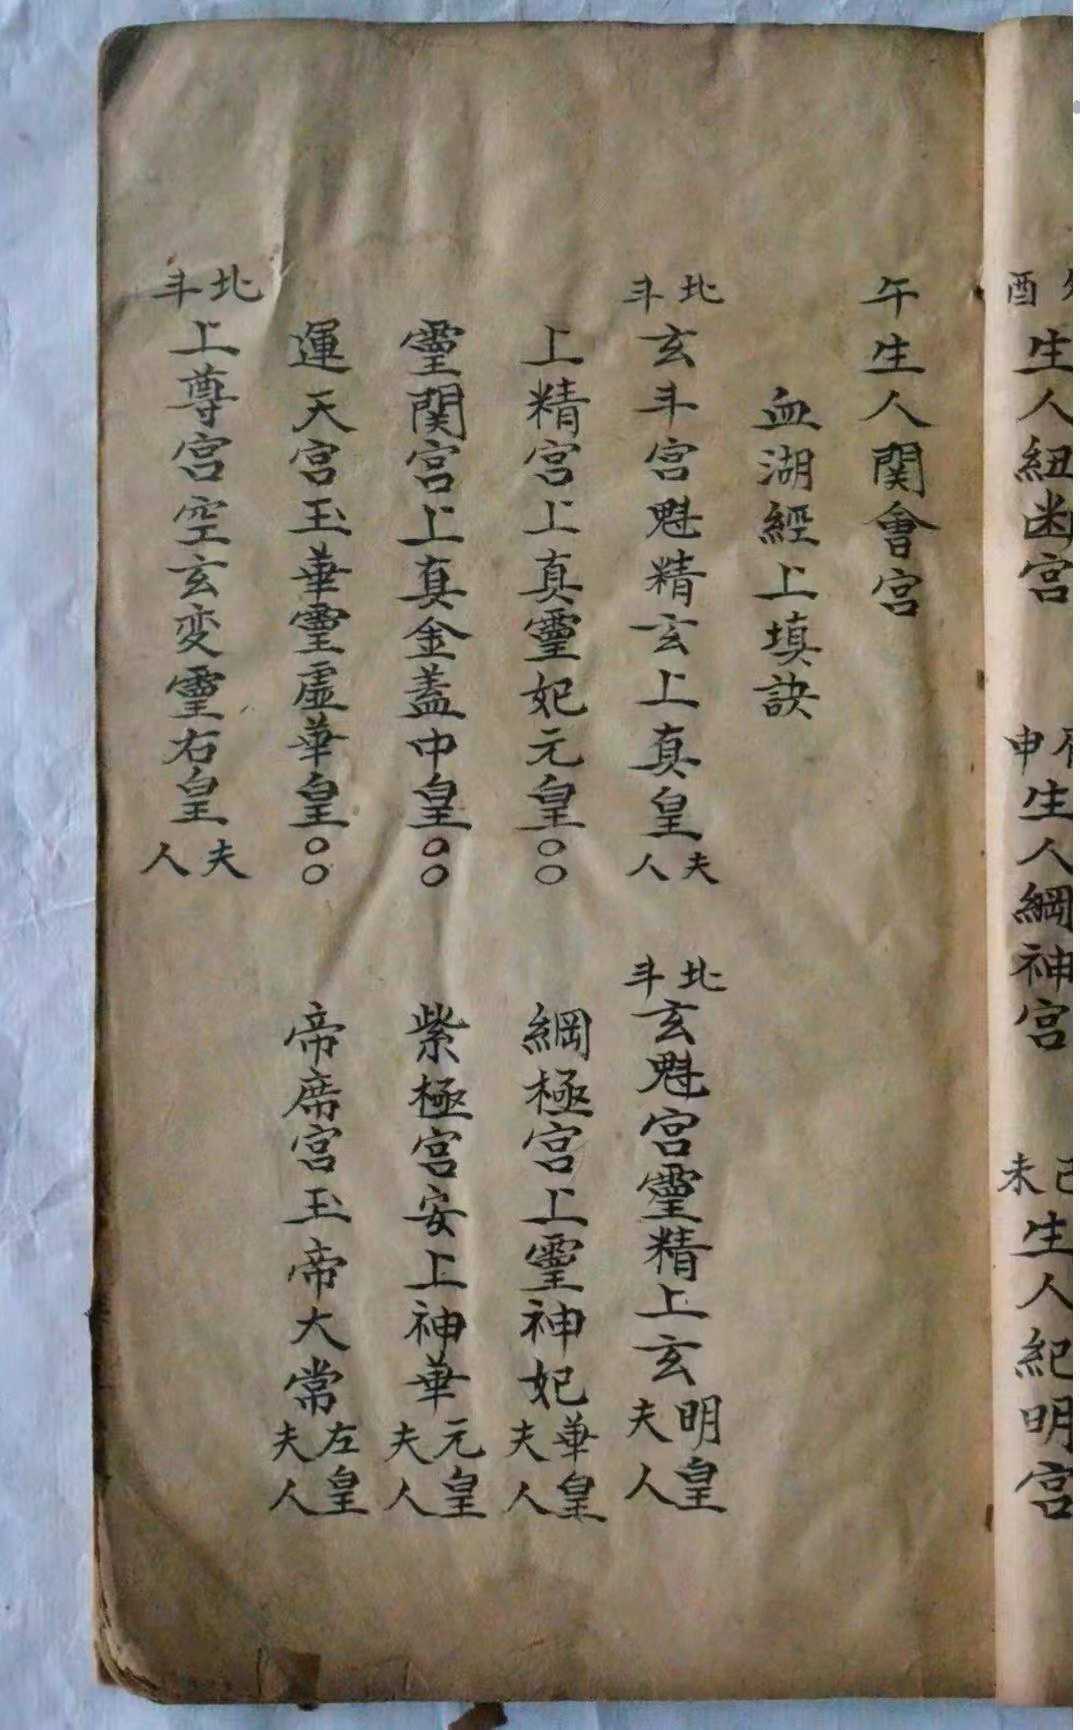 酉生人紐幽宮
申生人綱神宮
未生人紀明宮
午生人関會宮
血湖經上填訣
北斗玄斗宮魁精玄上真皇夫人
北斗玄魁宮靈精上玄明皇夫人
上精宮上真靈妃元皇○○
綱極宮上靈神妃華皇夫人
靈関宮上真金蓋中皇○○
紫極宮安上神華元皇夫人
運天宮玉華靈虛華皇○○
帝席宮玉帝大常左皇夫人
北斗上尊宮空玄变靈右皇夫人